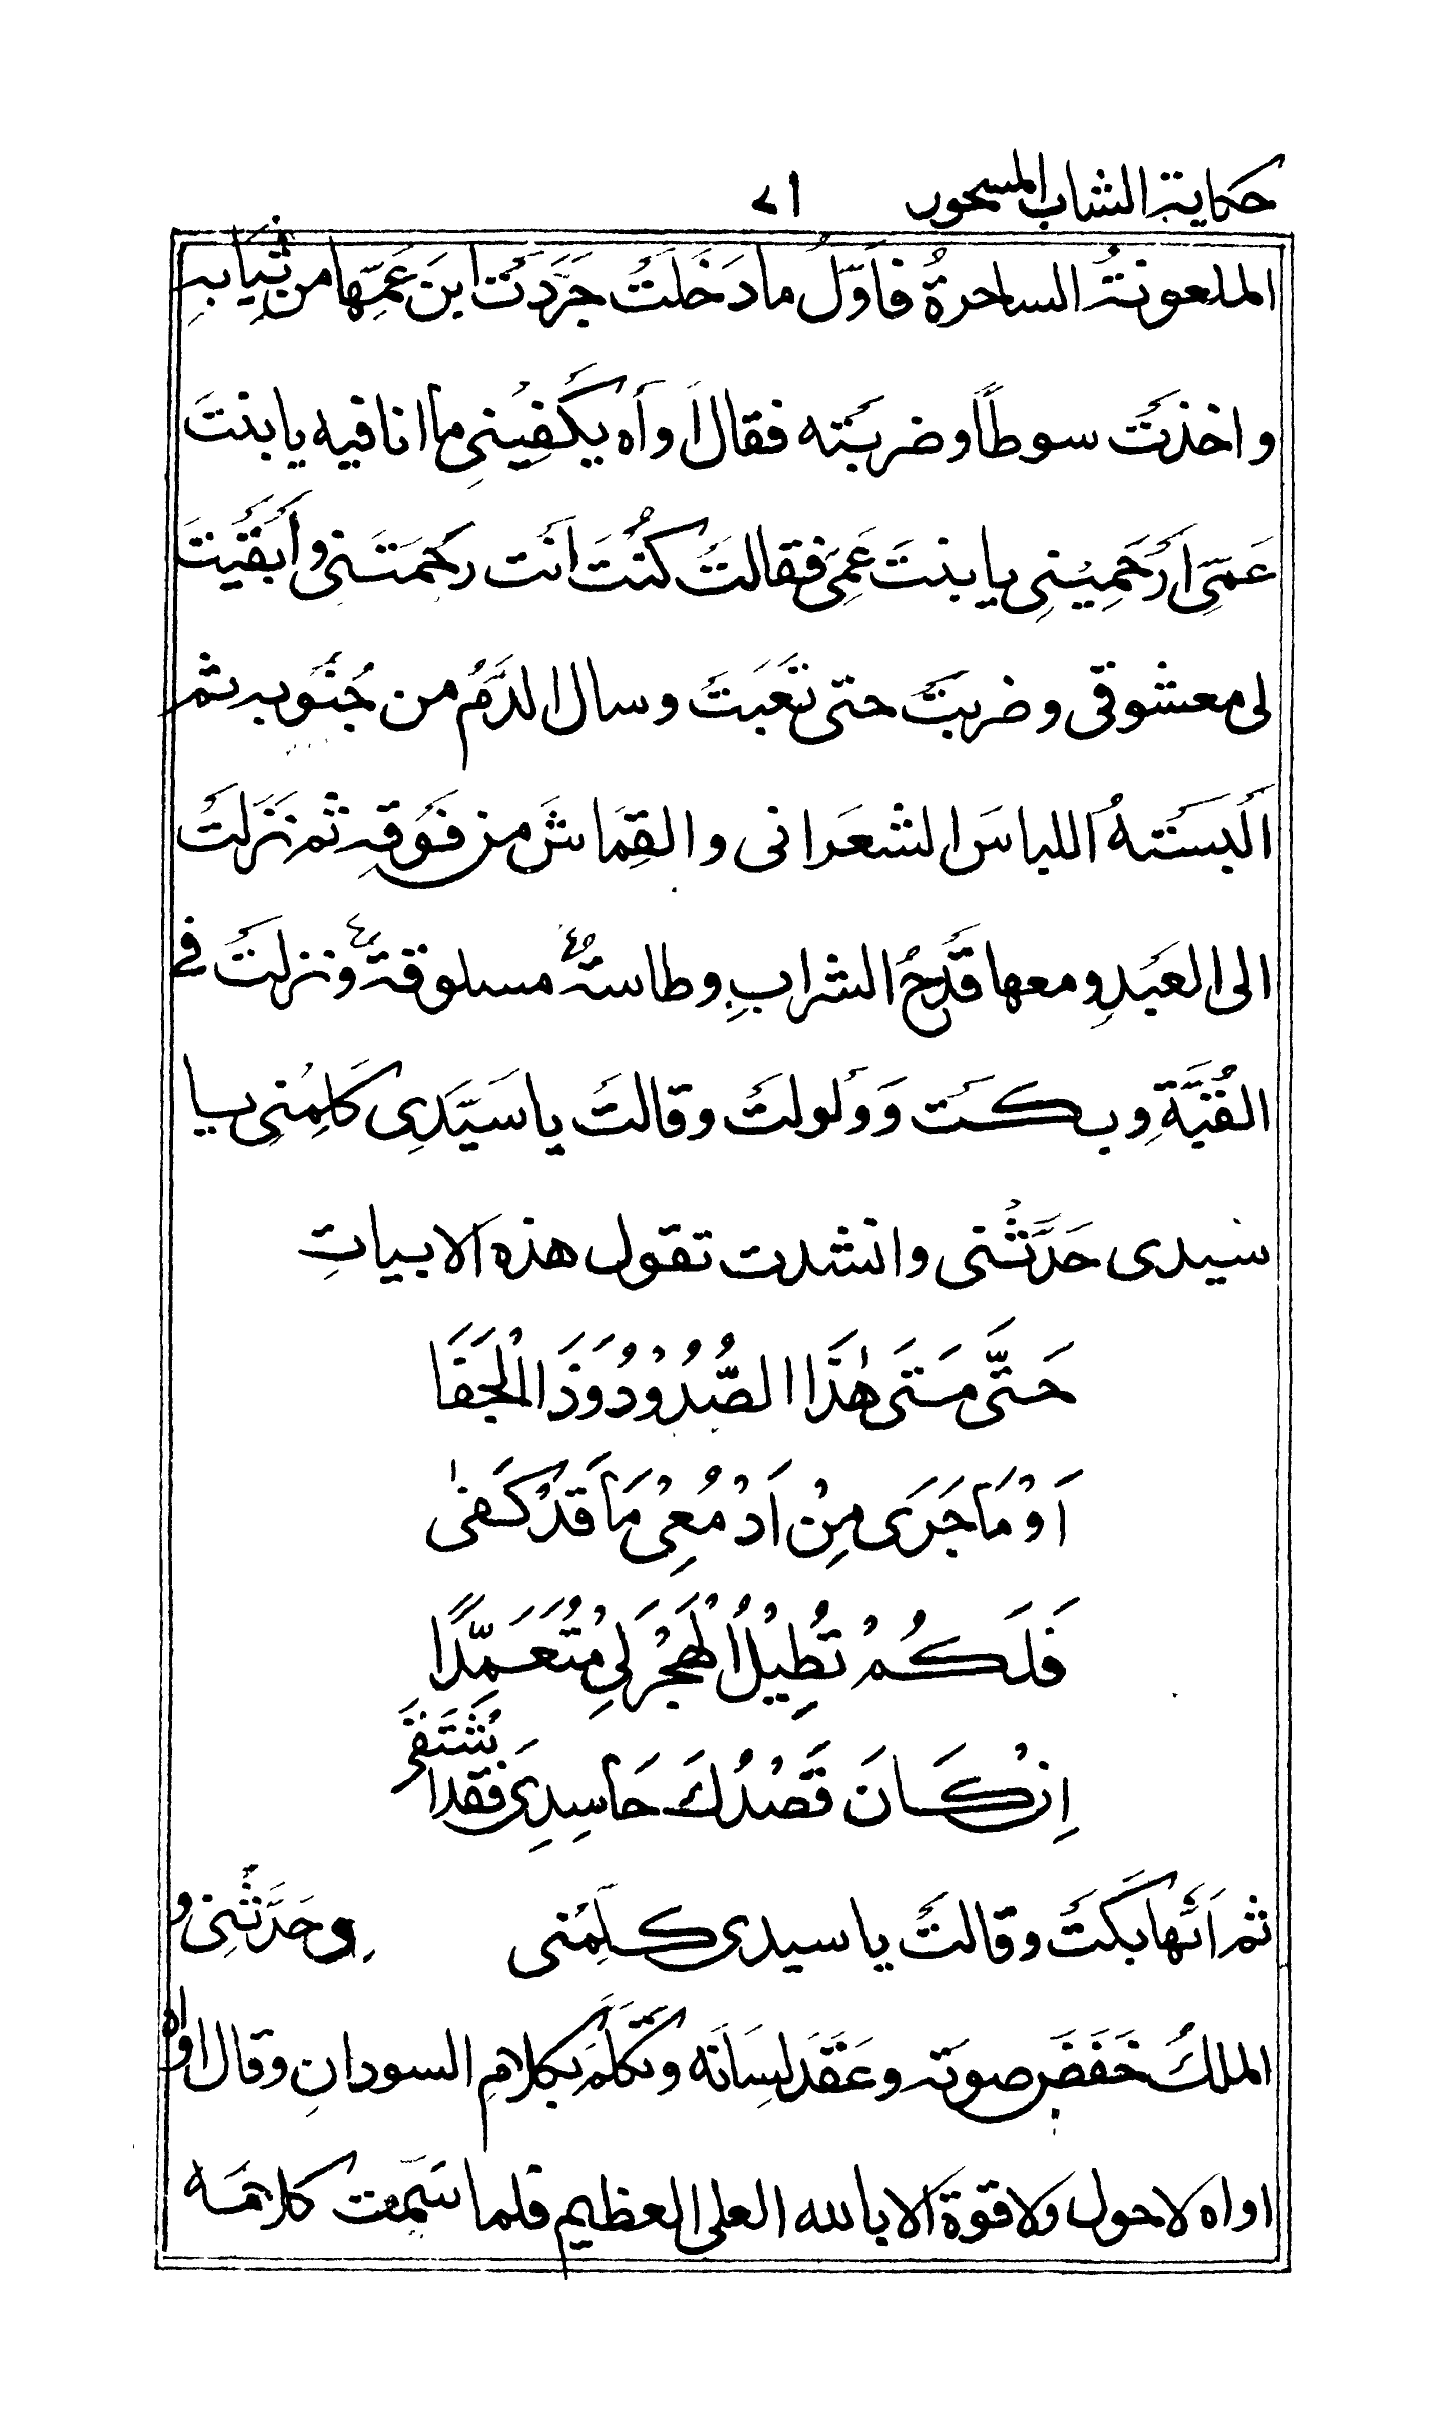 حكاية الشاب المسحور ٧١
الملعونةُ الساحرةُ فاَوّلُ ما دَخَلتْ جَرَّدَتْ ابنَ عَمِّها من ثِيَابهِ
واخذتْ سوطاً وضربَتْه فقال اَواَه يكْفِيْنى ما انا فيه يا بنتَ
عَمّىِ اَرْحَمِيْنى يا بنتَ عَمّىِ فقالتْ كُنْتَ انْت رحَمتَنى واَبْقَيْتَ
لى معشوقى وضربتْ حتى تَعَبَتْ وسال الدَّمُ من جُنُوبه ثم
اَلْبسَتْهُ اللباسَ الشعَرانى والقِمَاشَ من فَوْقهِ ثم نَزَلتْ
الى العَبْدِ ومعها قَدَحُ الشرابِ وطاسةُ مسلوقةٍ ونزلتْ فى
القُبَّةِ وبكَتْ وَوَلولتْ وقالتْ يا سَيّدِى كَلِّمْنِى يا
سيدى حَدَّثْنى وانشدت تقول هذه الابياتِ
حَتَّى مَتَى هٰذَا الصُّدُوْدُ وَذَا الْجَفَا
اَوْ مَا جَرَى مِنْ اَدْمُعِىْ مَا قَدْ كَفٰى
فَلَكُمْ تُطِيْلُ الْهَجْرَ لِىْ مُتَعَمِّدًا
اِنْ كَانَ قَصْدُكَ حَاسِدِىْ فَقَدِ اشْتَفَى
ثم اَنّها بَكَتْ وقالتْ يا سيدى كلِّمْنى وحَدَّثْنِى و
الملكُ خَفَضَ صوتَه وعَقَدَ لسِانَه وتَكَلَّمَ بكلامِ السودانِ وقال اواه
اواه لا حول ولا قوة الا بالله العلى العظيم فلما سَمعت كلامَه